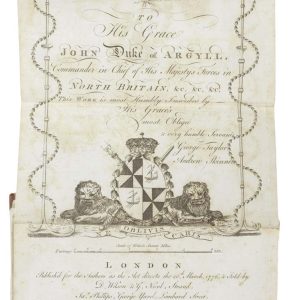 TO
His Grace
JOHN Duke of ARGYLL,
Commander in Chief of His Majestys Forces in
NORTH BRITAIN, &c. &c. &c.
This WORK is most Humbly Inscribed by
His Grace's
most Oblig'd
& very humble Servants
George Taylor
Andrew Skinner
OBLIVIS CARIS
LONDON
Published for the Authors as the Act directs the 20th March, 1776, & Sold by
D. Wilson & G. Nicol, Strand.
George Yard, Lombard Street